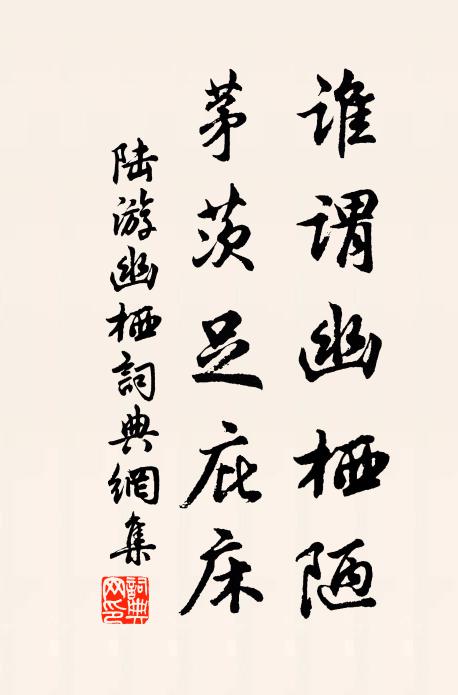 谁谓幽栖陋
茅茨足庇床
陆游幽栖詞典網集
詞典网印